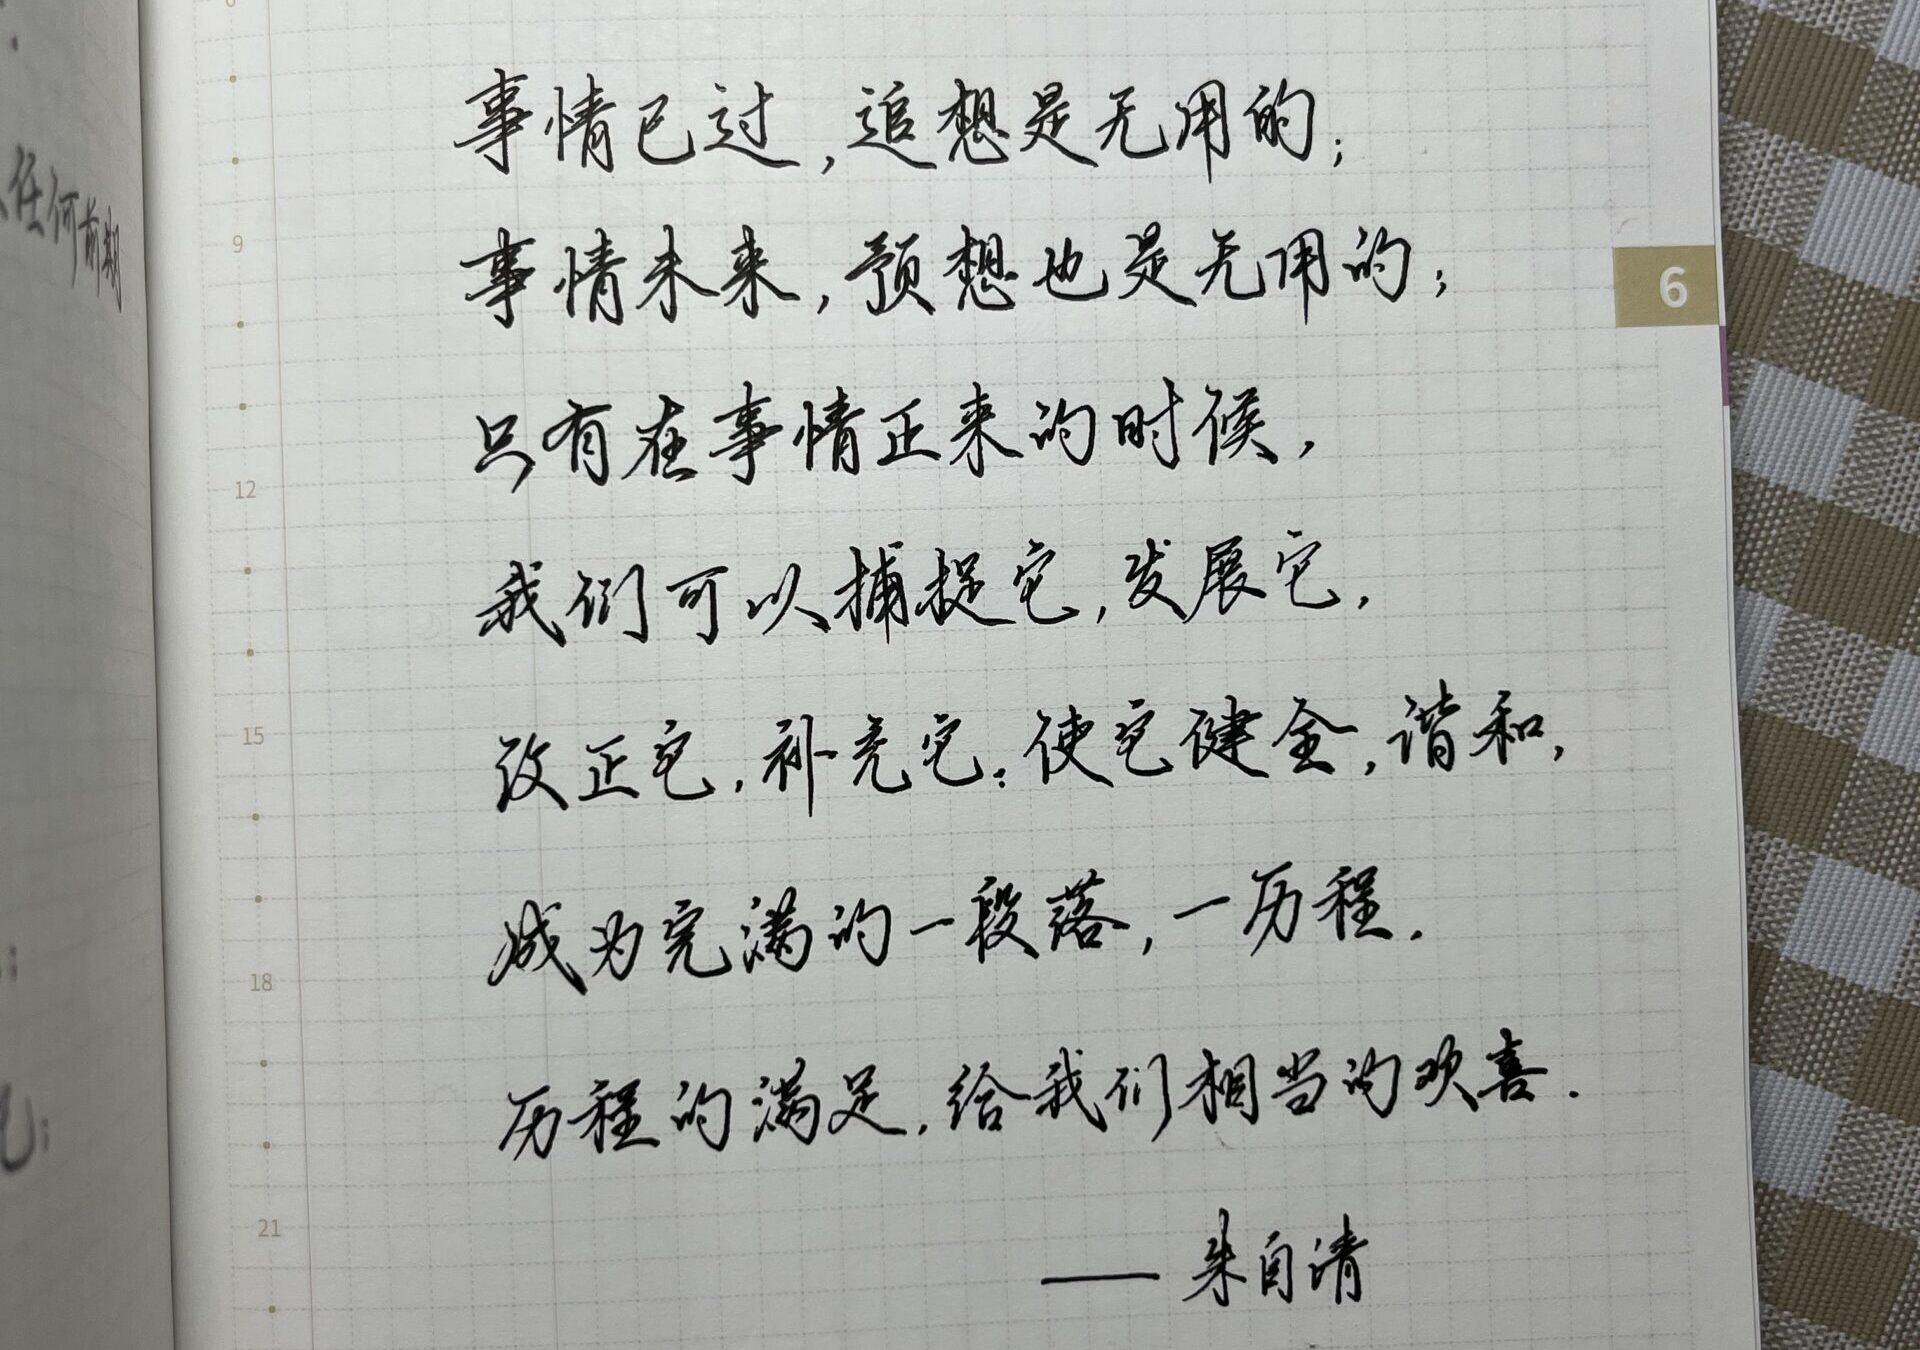 任何前期
事情已过,追想是无用的;
事情未来,预想也是无用的;
只有在事情正来的时候,
我们可以捕捉它,发展它,
改正它,补充它;使它健全,谐和,
成为完满的一段落,一历程.
历程的满足,给我们相当的欢喜.
——朱自清
9
12
15
18
21
6